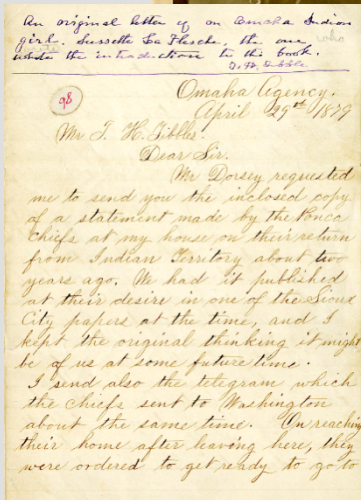 An original letter of an Omaha Indian
girl. Sussette La Flesche, the one who
wrote the introduction to the book.
T. H. Tibbles
98
Omaha Agency.
April 29th 1879
Mr T. H. Tibbles.
Dear Sir.
Mr Dorsey requested
me to send you the inclosed copy
of a statement made by the Ponca
Chiefs at my house on their return
from Indian Territory about two
years ago. We had it published
at their desire in one of the Sioux
City papers at the time, and I
kept the original thinking it might
be of us at some future time.
I send also the telegram which
the chiefs sent to Washington
about the same time. On reaching
their home after leaving here, they
were ordered to get ready to go to